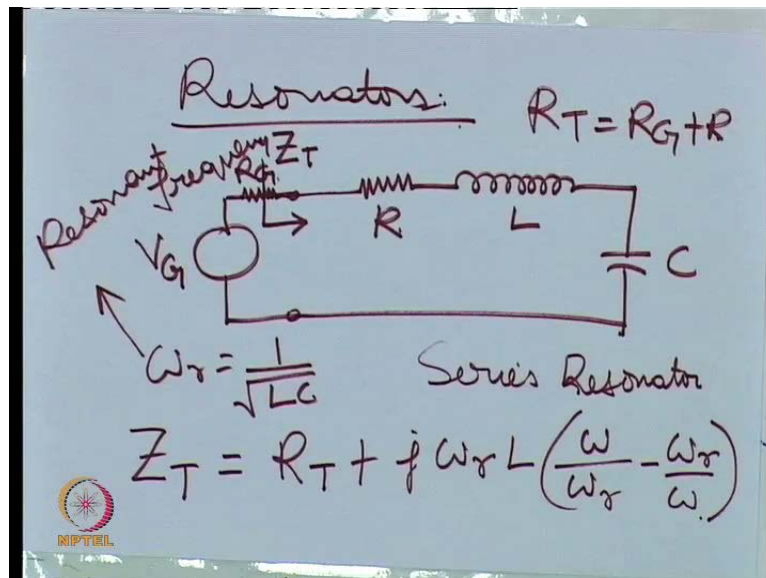 Resonators:
R_T = R_G + R
Resonant
frequency
Z_T
R_G
V_G
R
L
C
ω_r = 1/√LC
Series Resonator
Z_T = R_T + j ω_r L (ω/ω_r - ω_r/ω)
NPTEL